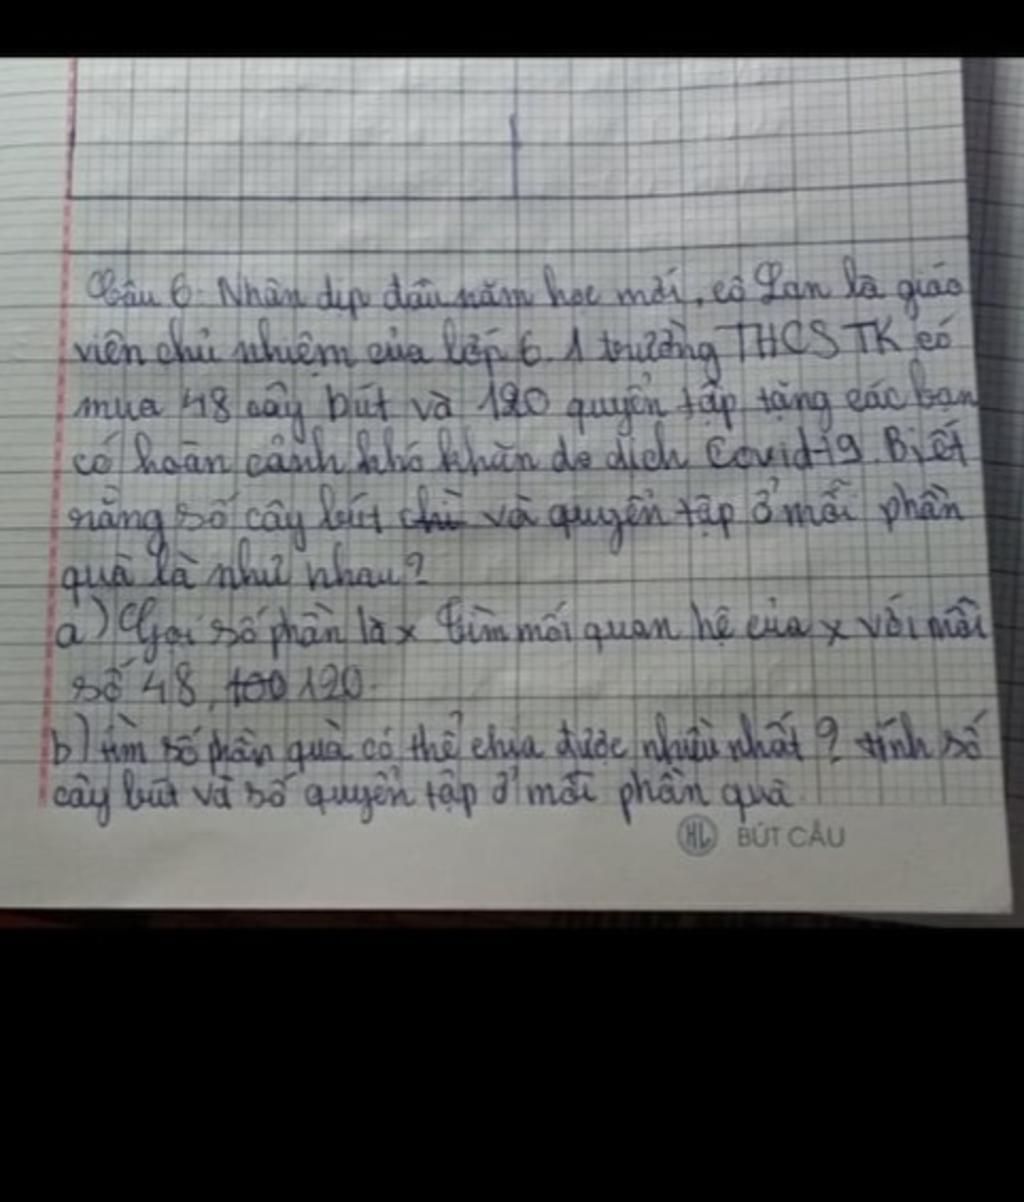 Câu 6: Nhân dịp đầu năm học mới, cô Lan là giáo
viên chủ nhiệm của lớp 6.1 trường THCS TK có
mua 48 cây bút và 120 quyển tập tặng các bạn
có hoàn cảnh khó khăn do dịch Covid-19. Biết
rằng số cây bút chì và quyển tập ở mỗi phần
quà là như nhau?
a) Gọi số phần là x Tìm mối quan hệ của x với mỗi
số 48, 100 120.
b) tìm số phần quà có thể chia được nhiều nhất? tính số
cây bút và số quyển tập ở mỗi phần quà.
HL BÚT CÂU